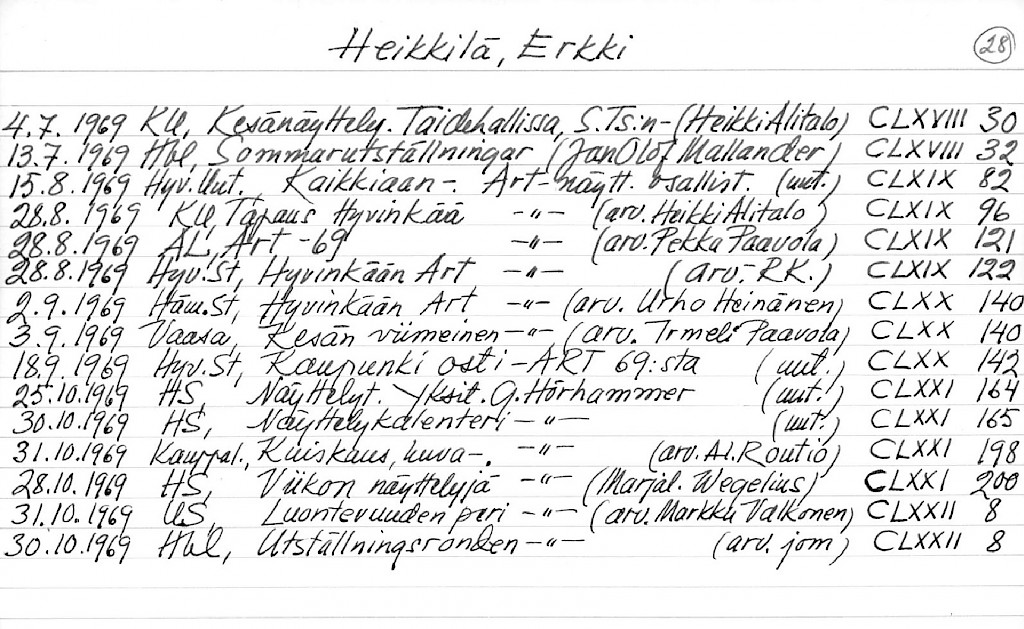 Heikkilä, Erkki 28
4.7. 1969 KU, Kesänäyttely. Taidehallissa, S.Ts:n- (Heikki Alitalo) CLXVIII 30
13.7. 1969 Hbl, Sommarutställningar (JanOlof Mallander) CLXVIII 32
15.8. 1969 Hyv.Uut., Kaikkiaan-. Art-näytt. osallist. (uut.) CLXIX 82
28.8. 1969 KU, Tapaus Hyvinkää -"- (arv. Heikki Alitalo) CLXIX 96
28.8.1969 AL, Art -69 -"- (arv. Pekka Paavola) CLXIX 121
28.8.1969 Hyv.St, Hyvinkään Art -"- (arv.-R.K.) CLXIX 122
2.9. 1969 Häm.St, Hyvinkään Art -"- (arv. Urho Heinänen) CLXX 140
3.9. 1969 Vaasa, Kesän viimeinen -"- (arv. Irmeli Paavola) CLXX 140
18.9. 1969 Hyv.St, Kaupunki osti-ART 69:sta (uut.) CLXX 142
25.10.1969 HS, Näyttelyt. Yksit. G. Hörhammer (uut.) CLXXI 164
30.10.1969 HS, Näyttelykalenteri -"- (uut.) CLXXI 165
31.10.1969 Kauppal., Kuiskaus, kuva-. -"- (arv. A.I. Routio) CLXXI 198
28.10. 1969 HS, Viikon näyttelyjä -"- (Marjal. Wegelius) CLXXI 200
31.10. 1969 US, Luontevuuden pari -"- (arv. Markku Valkonen) CLXXII 8
30.10.1969 Hbl, Utställningsronden -"- (arv. jom) CLXXII 8